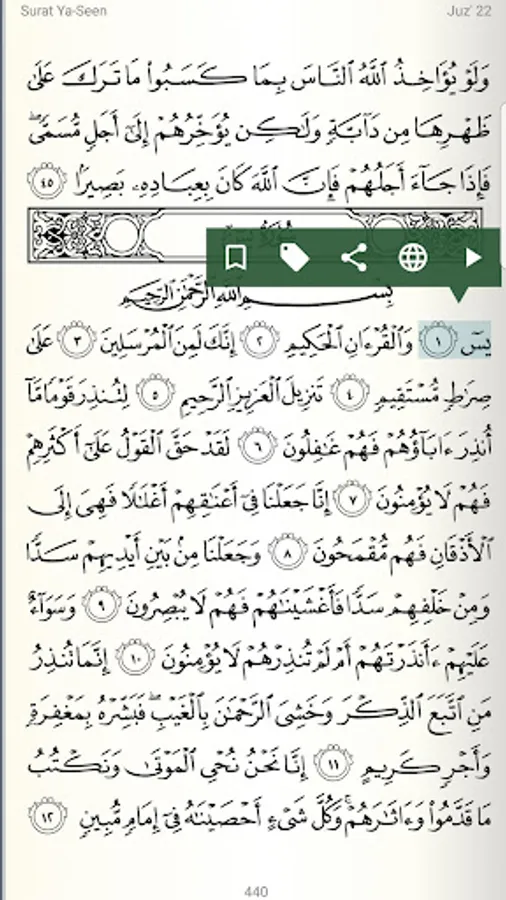 Surat Ya-Seen Juz' 22
وَلَوْ يُؤَاخِذُ ٱللَّهُ ٱلنَّاسَ بِمَا كَسَبُوا۟ مَا تَرَكَ عَلَىٰ
ظَهْرِهَا مِن دَآبَّةٍ وَلَٰكِن يُؤَخِّرُهُمْ إِلَىٰٓ أَجَلٍ مُّسَمًّى ۖ
فَإِذَا جَآءَ أَجَلُهُمْ فَإِنَّ ٱللَّهَ كَانَ بِعِبَادِهِۦ بَصِيرًۢا ٤٥
بِسْمِ ٱللَّهِ ٱلرَّحْمَٰنِ ٱلرَّحِيمِ
يسٓ ١ وَٱلْقُرْءَانِ ٱلْحَكِيمِ ٢ إِنَّكَ لَمِنَ ٱلْمُرْسَلِينَ ٣ عَلَىٰ
صِرَٰطٍ مُّسْتَقِيمٍ ٤ تَنزِيلَ ٱلْعَزِيزِ ٱلرَّحِيمِ ٥ لِتُنذِرَ قَوْمًا مَّآ
أُنذِرَ ءَابَآؤُهُمْ فَهُمْ غَٰفِلُونَ ٦ لَقَدْ حَقَّ ٱلْقَوْلُ عَلَىٰٓ أَكْثَرِهِمْ
فَهُمْ لَا يُؤْمِنُونَ ٧ إِنَّا جَعَلْنَا فِىٓ أَعْنَٰقِهِمْ أَغْلَٰلًا فَهِىَ إِلَى
ٱلْأَذْقَانِ فَهُم مُّقْمَحُونَ ٨ وَجَعَلْنَا مِنۢ بَيْنِ أَيْدِيهِمْ سَدًّا
وَمِنْ خَلْفِهِمْ سَدًّا فَأَغْشَيْنَٰهُمْ فَهُمْ لَا يُبْصِرُونَ ٩ وَسَوَآءٌ
عَلَيْهِمْ ءَأَنذَرْتَهُمْ أَمْ لَمْ تُنذِرْهُمْ لَا يُؤْمِنُونَ ١٠ إِنَّمَا تُنذِرُ
مَنِ ٱتَّبَعَ ٱلذِّكْرَ وَخَشِىَ ٱلرَّحْمَٰنَ بِٱلْغَيْبِ ۖ فَبَشِّرْهُ بِمَغْفِرَةٍ
وَأَجْرٍ كَرِيمٍ ١١ إِنَّا نَحْنُ نُحْىِ ٱلْمَوْتَىٰ وَنَكْتُبُ
مَا قَدَّمُوا۟ وَءَاثَٰرَهُمْ ۚ وَكُلَّ شَىْءٍ أَحْصَيْنَٰهُ فِىٓ إِمَامٍ مُّبِينٍ ١٢
440